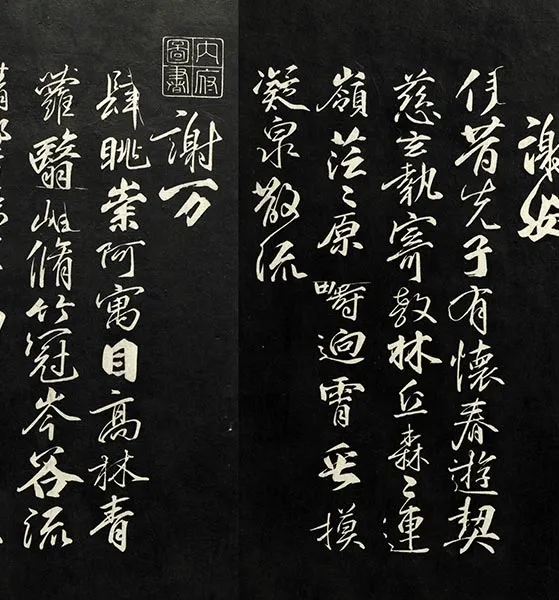 謝安
伊昔先子有懷春遊契
慈言執寄敖林丘森〻連
嶺茫〻原疇迥霄垂模
凝泉散流
內府圖書
謝万
肆眺崇阿寓目高林青
蘿翳岫脩竹冠岑谷流